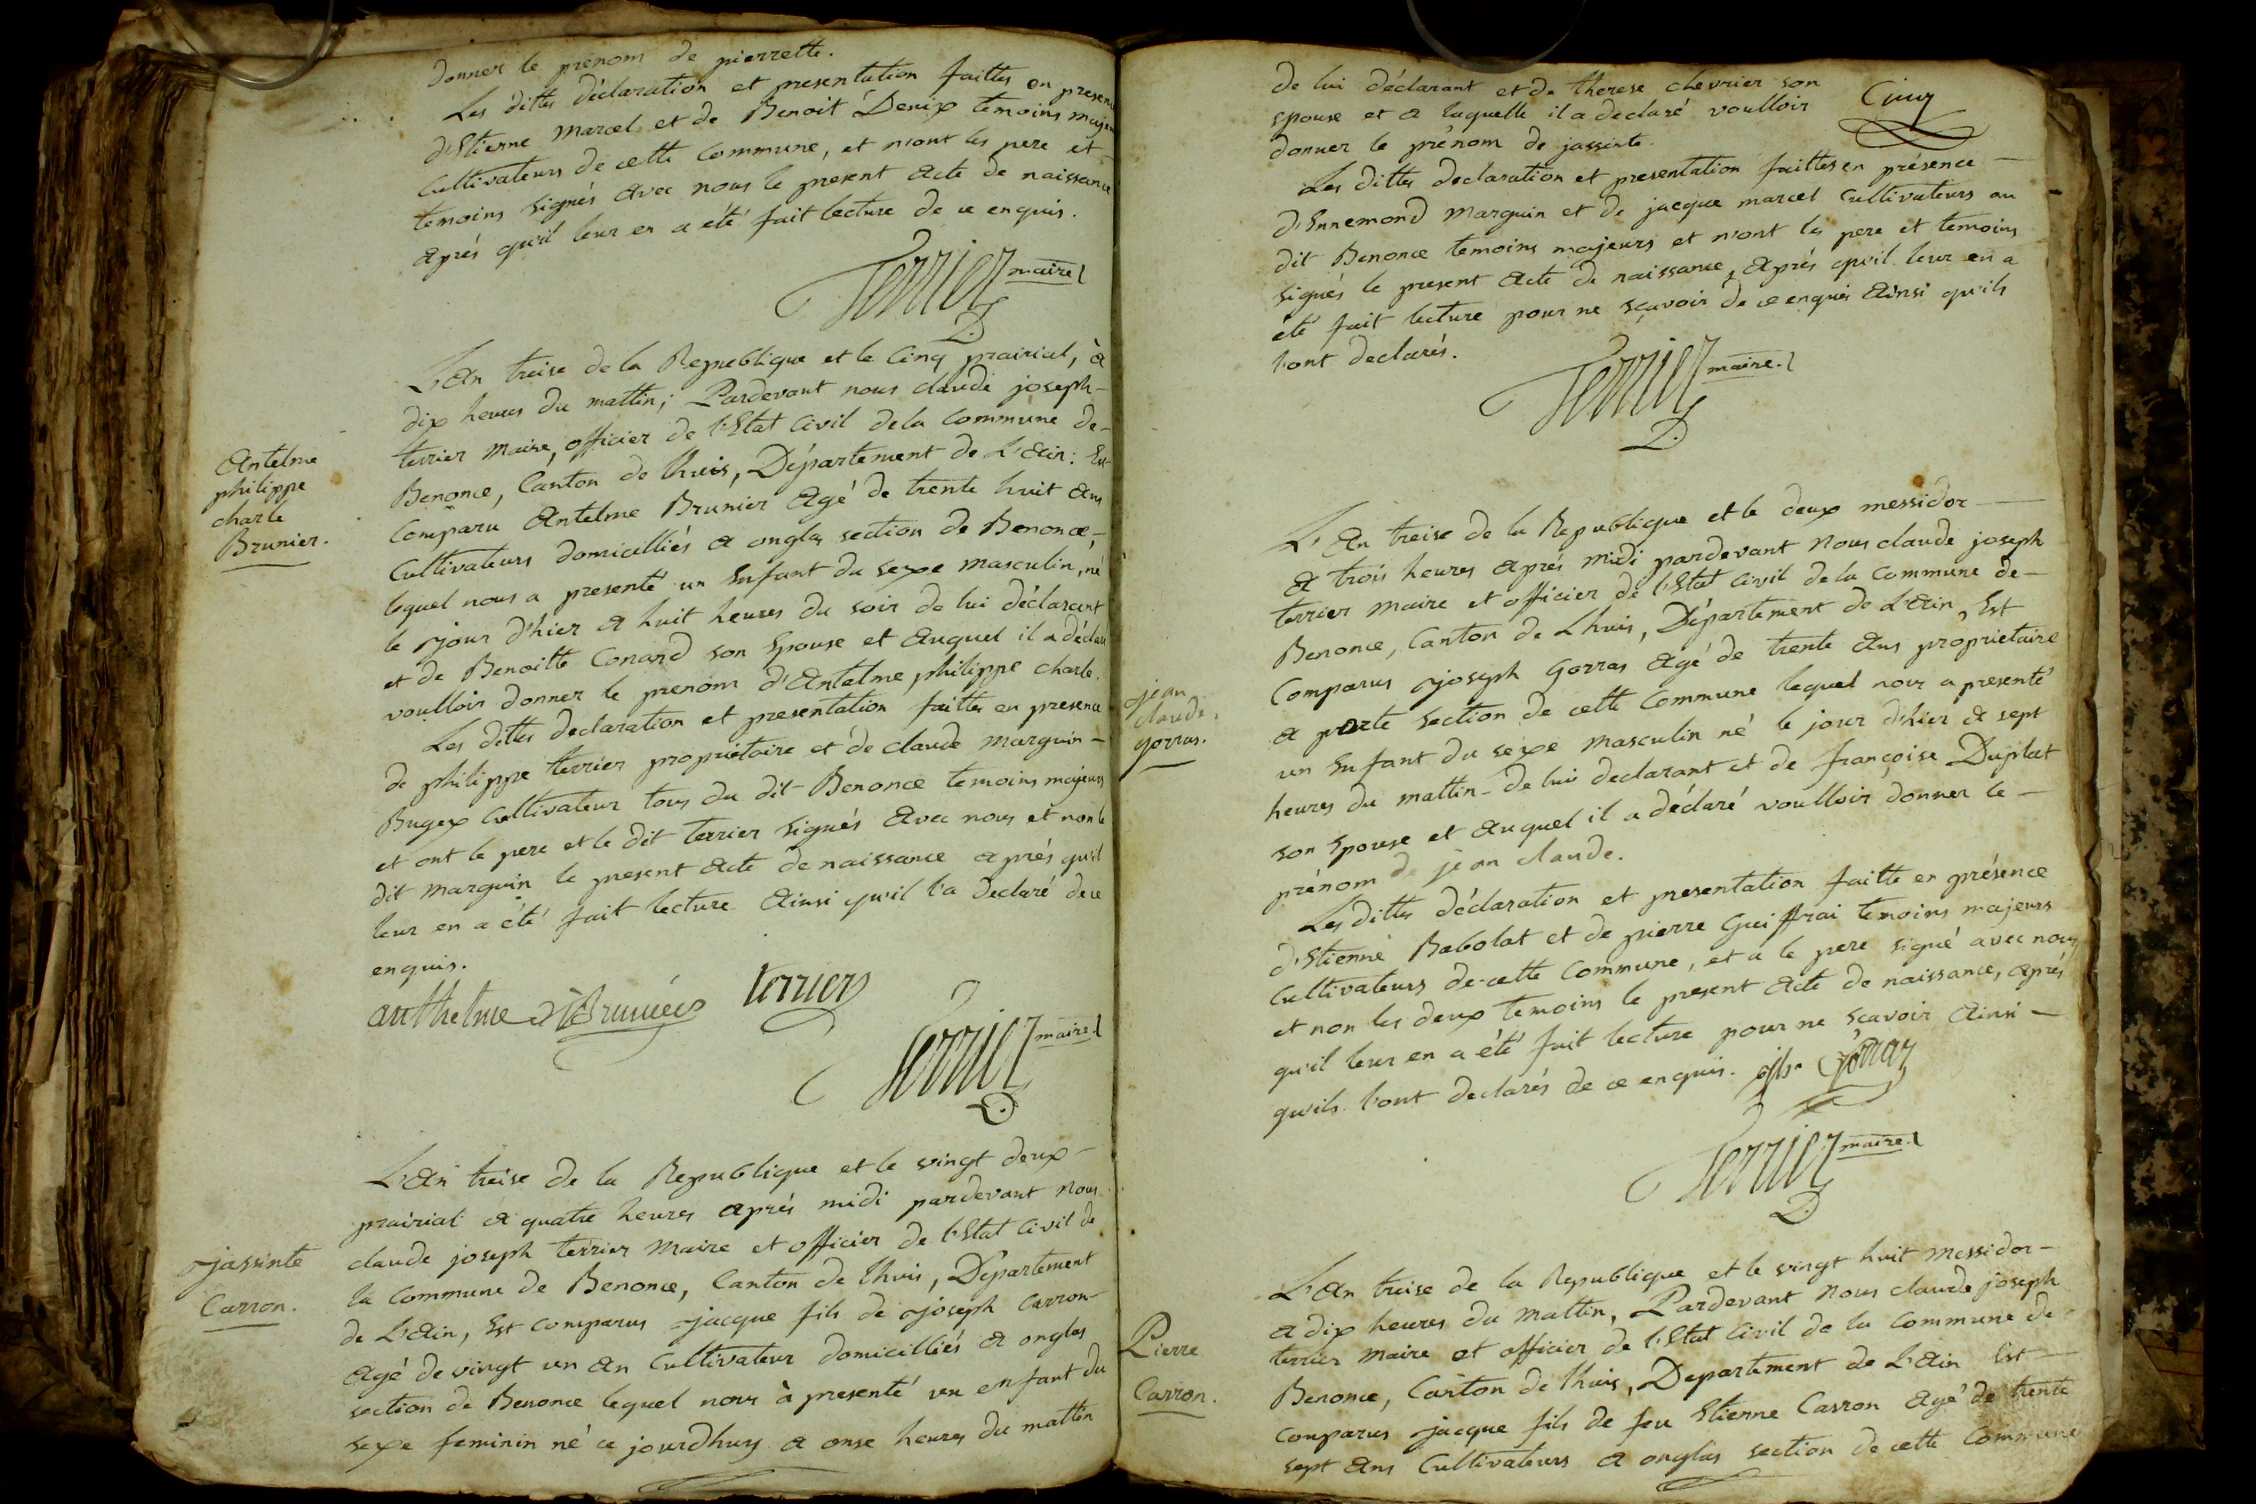 donner le prenom de pierrette.
Les dittes déclaration et presentation faittes en presence
d'Etienne Marcel et de Benoit Denix temoins majeurs
Cultivateurs de cette Commune, et n'ont les pere et
temoins signés avec nous le present acte de naissance
aprés qu'il leur en a été fait lecture de ce enquis.
Terrier maire
L'an treise de la Republique et le Cinq prairial, à
dix heures du mattin; Pardevant nous claude joseph
terrier Maire, officier de l'Etat Civil de la Commune de
Benonce, Canton de lhuis, Département de L'ain: Est
Antelme
philippe
charle
Brunier.
Comparu Antelme Brunier agé de trente huit ans
Cultivateurs domicilliés a onglas section de Benonce,
lequel nous a presenté un Enfant du sexe masculin, né
le jour d'hier a huit heures du soir de lui déclarant
et de Benoitte Conand son Epouse et auquel il a déclaré
voulloir donner le prenom d'Antelme, philippe charle.
Les dittes declaration et presentation faittes en presence
de philippe terrier proprietaire et de claude marguin
Bugex Cultivateur tous du dit Benonce temoins majeurs
et ont le pere et le dit terrier signés avec nous et non le
dit marguin le present acte de naissance aprés qu'il
leur en a été fait lecture ainsi qu'il l'a declaré de ce
enquis.
anthelme Brunier terrier
Terrier maire
L'an treise de la Republique et le vingt deux
prairial a quatre heures aprés midi pardevant nous
claude joseph terrier Maire et officier de l'Etat Civil de
jassinte
Carron.
la Commune de Benonce, Canton de lhuis, Departement
de L'ain, Est comparus jacque fils de joseph Carron
agé de vingt un an Cultivateur domicilliés a onglas
section de Benonce lequel nous à presenté un enfant du
sexe feminin né ce jourdhuy a onse heures du mattin
de lui déclarant et de therese chevrier son
Epouse et a laquelle il a declaré voulloir
donner le prénom de jassinte.
Les dittes declaration et presentation faittes en présence
d'Ennemond Marguin et de jacque marcel Cultivateurs au
dit Benonce temoins majeurs et n'ont les pere et temoins
signés le present acte de naissance, aprés qu'il leur en a
été fait lecture pour ne sçavoir de ce enquis ainsi qu'ils
l'ont declarés.
Terrier maire.
L'an treise de la Republique et le deux messidor
a trois heures aprés midi pardevant nous claude joseph
terrier maire et officier de l'Etat civil de la Commune de
Benonce, Canton de Lhuis, Département de L'ain, Est
jean
claude.
gorras.
Comparus joseph Gorras agé de trente ans proprietaire
a porte section de cette Commune lequel nous a presenté
un Enfant du sexe masculin né le jour d'hier a sept
heures du mattin de lui declarant et de françoise Duplat
son Epouse et auquel il a déclaré voulloir donner le
prénom de jean claude.
Les dittes déclaration et presentation faitte en présence
d'Etienne Babolat et de pierre Guiffrai temoins majeurs
Cultivateurs de cette Commune, et a le pere signé avec nous
et non les deux temoins le present acte de naissance, aprés
qu'il leur en a été fait lecture pour ne sçavoir ainsi
qu'ils l'ont declarés de ce enquis. jph gorras
Terrier maire.
L'an treise de la Republique et le vingt huit Messidor
a dix heures du mattin, Pardevant Nous claude joseph
terrier maire et officier de l'Etat Civil de la Commune de
Pierre
Carron.
Benonce, Canton de lhuis, Departement de L'ain Est
comparus jacque fils de feu Etienne Carron agé de trente
sept ans Cultivateurs a onglas section de cette Commune